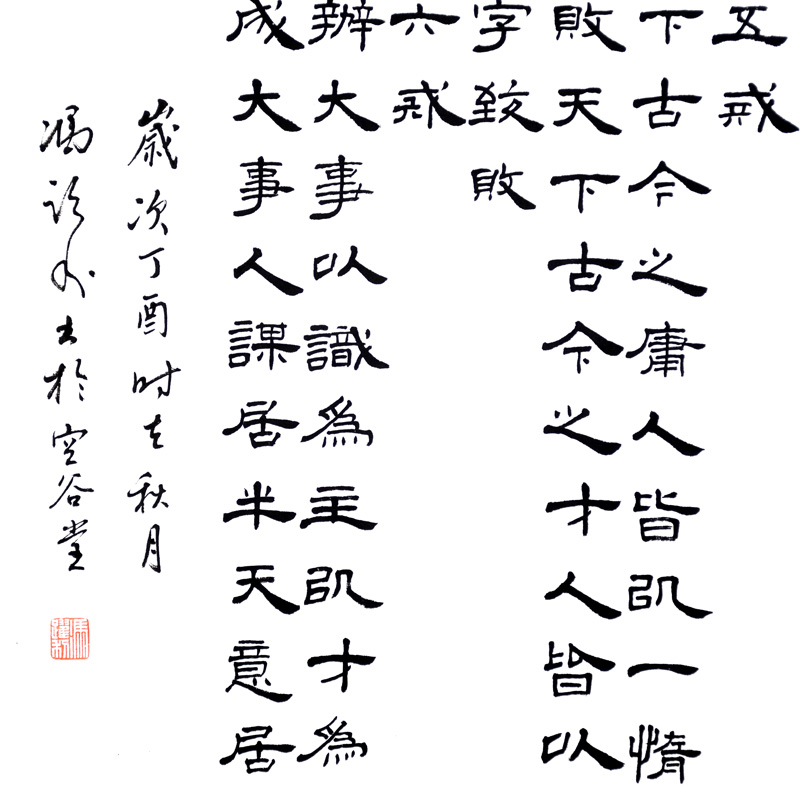 五戒
下古今之庸人皆以一惰
敗天下古今之才人皆以
字致敗
六戒
辦大事以識為主以才為
成大事人謀居半天意居
歲次丁酉時在秋月
馮 書於空谷堂